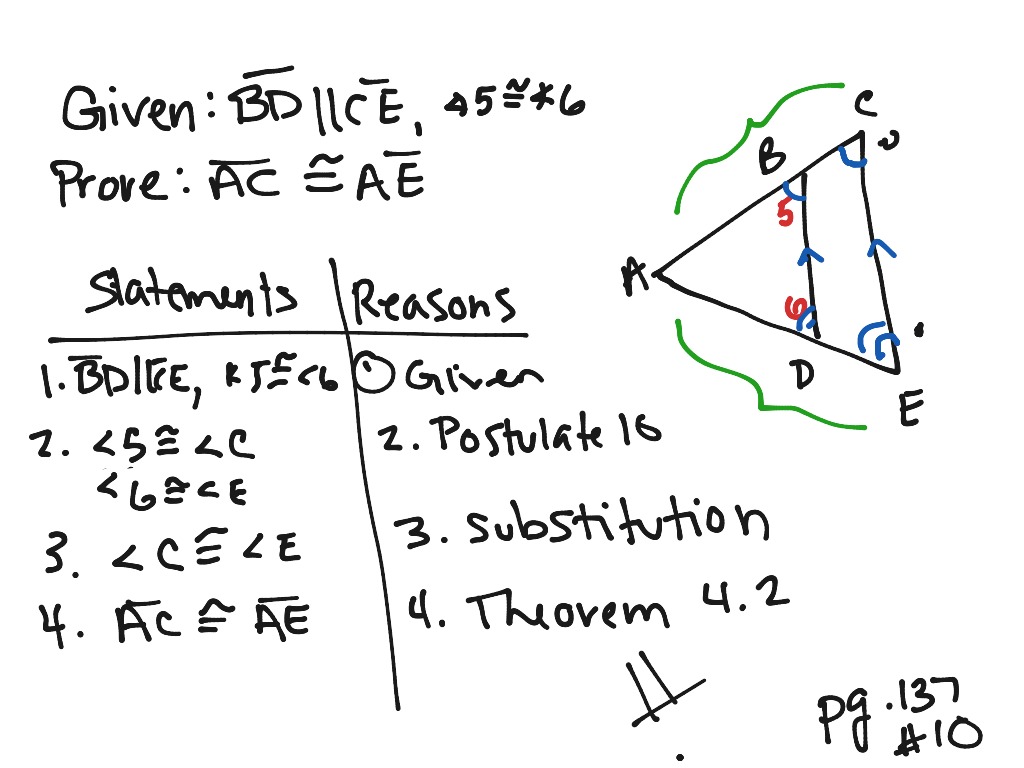 Given: BD||CE, ∡5≅∡6
Prove: AC ≅ AE
Statements
Reasons
1. BD||CE, ∡5≅<6
① Given
2. <5 ≅ <C
<6 ≅ <E
2. Postulate 10
3. <C ≅ <E
3. substitution
4. AC ≅ AE
4. Theorem 4.2
C
B
5
A
6
D
E
pg.137
#10